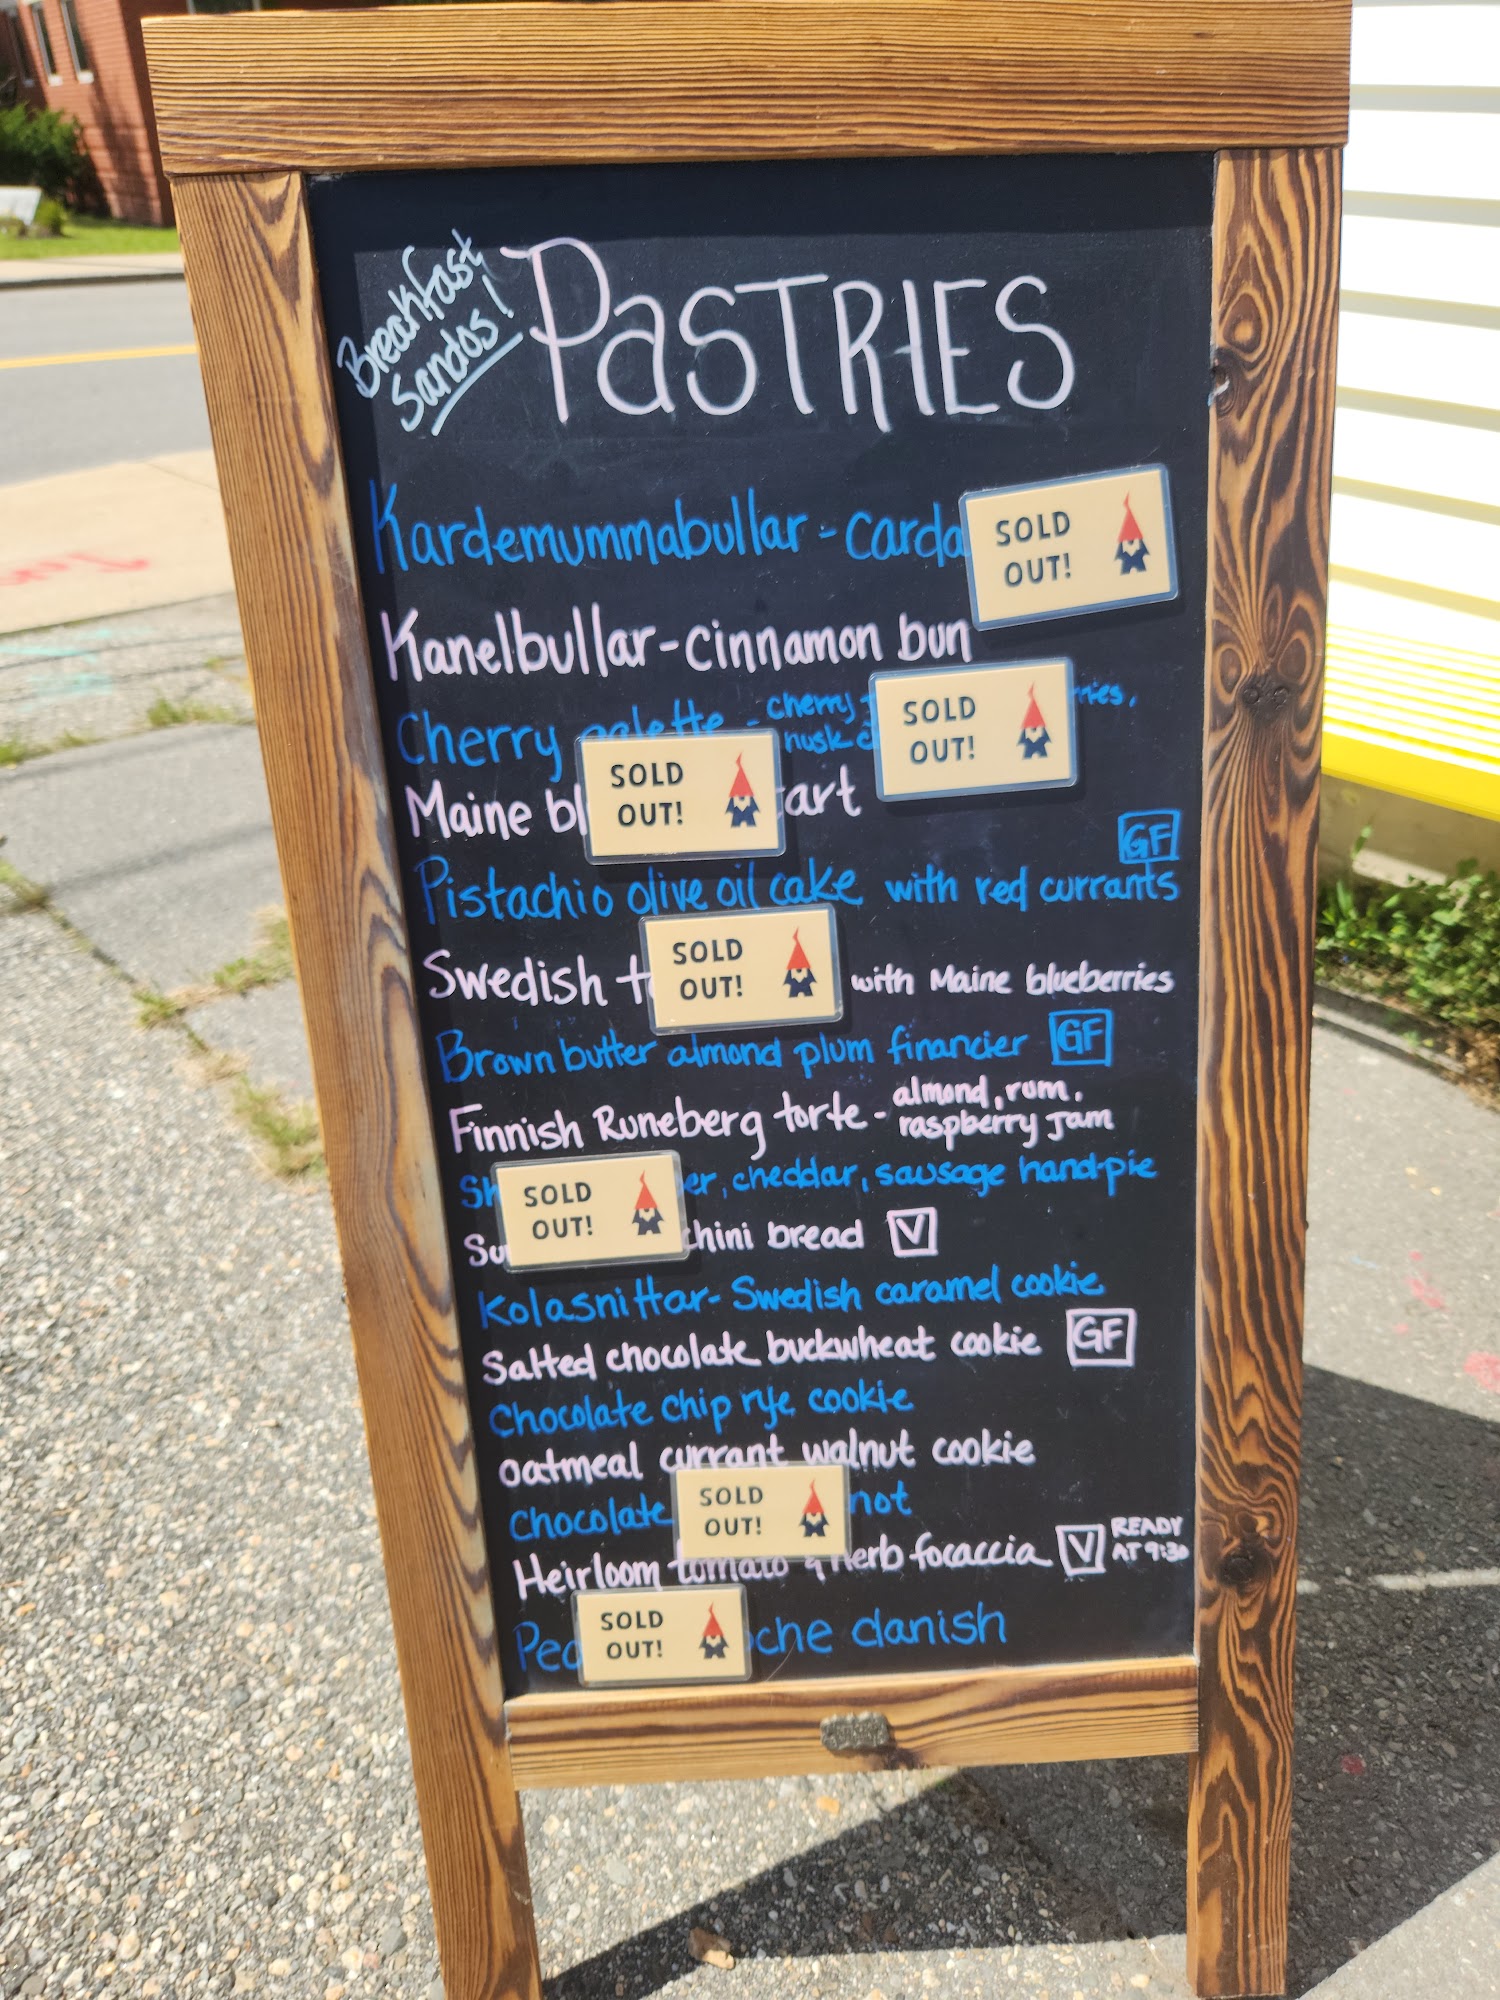 Breakfast
Sandos!
PaSTRIES
Kardemummabullar - carda
SOLD
OUT!
Kanelbullar - cinnamon bun
Cherry galette - cherry
SOLD
OUT!
husk
Maine bl
SOLD
OUT!
tart
GF
Pistachio olive oil cake with red currants
Swedish t
SOLD
OUT!
with Maine blueberries
Brown butter almond plum financier GF
Finnish Runeberg torte - almond, rum,
raspberry jam
Sh
SOLD
OUT!
er, cheddar, sausage hand-pie
Su
chini bread V
Kolasnittar - Swedish caramel cookie
Salted chocolate buckwheat cookie GF
Chocolate chip rye cookie
Oatmeal currant walnut cookie
Chocolate
SOLD
OUT!
not
Heirloom tomato & herb focaccia V READY
AT 9:30
Pea
SOLD
OUT!
oche danish